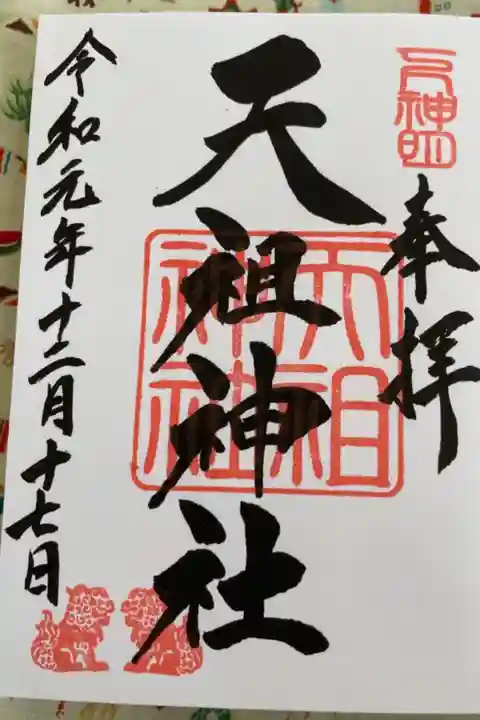 奉拝
天祖神社
天祖神社
令和元年十二月十七日